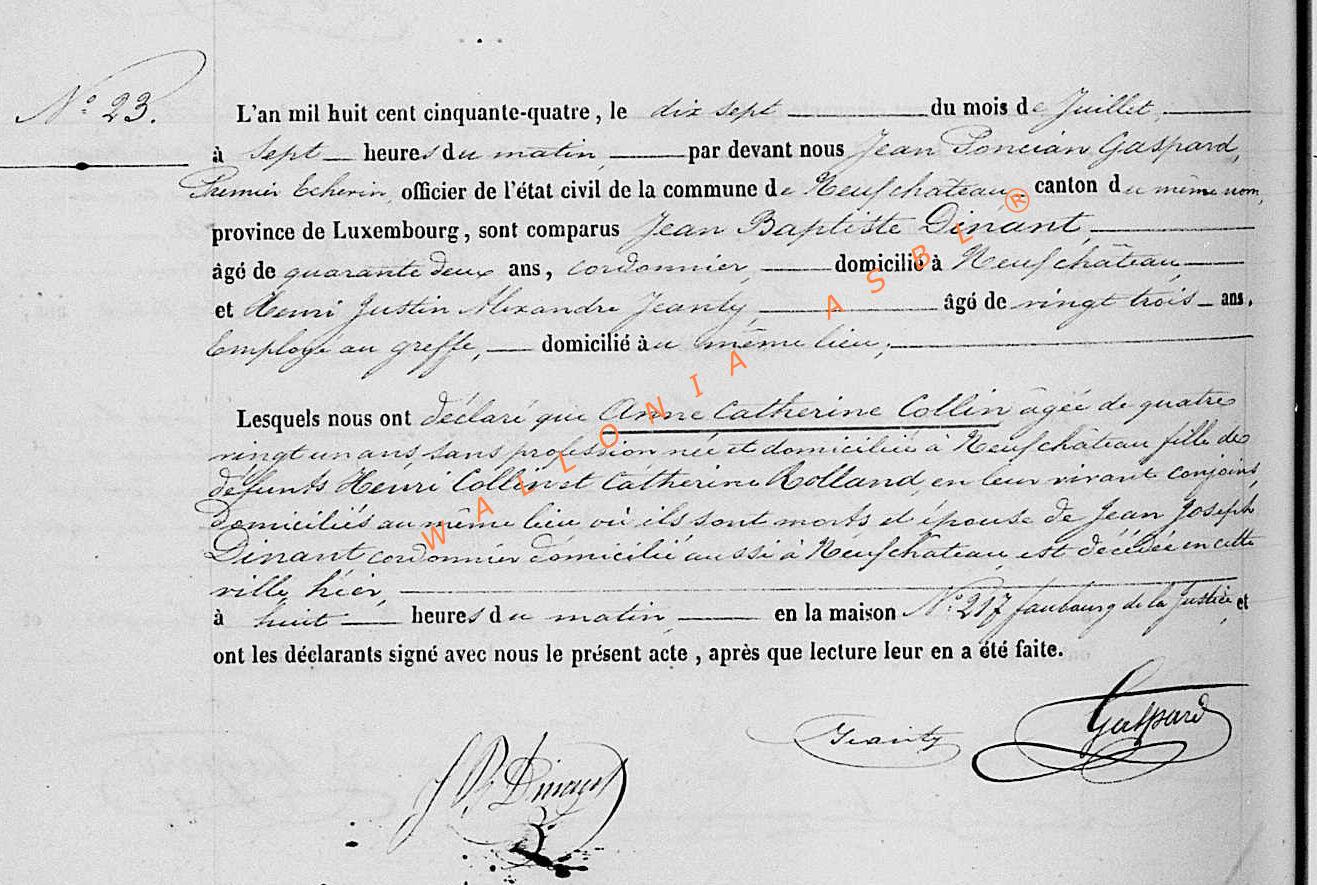 N.° 23.
L'an mil huit cent cinquante-quatre, le dix sept du mois de Juillet,
à sept heures du matin, par devant nous Jean Poncian Gaspard,
Premier Echevin, officier de l'état civil de la commune de Neufchâteau, canton du même nom,
province de Luxembourg, sont comparus Jean Baptiste Dinant,
âgé de quarante deux ans, cordonnier, domicilié à Neufchâteau,
et Henri Justin Alexandre Jeanty, âgé de vingt trois ans,
Employé au greffe, domicilié au même lieu;
Lesquels nous ont déclaré que Anne Catherine Collin âgée de quatre
vingt un ans, sans profession née et domiciliée à Neufchâteau fille de
défunts Henri Collin et Catherine Rolland, en leur vivant conjoints,
domiciliés au même lieu où ils sont morts et épouse de Jean Joseph
Dinant cordonnier domicilié aussi à Neufchâteau, est décédée en cette
ville, hier,
à huit heures du matin, en la maison N.° 217 faubourg de la Justice, et
ont les déclarants signé avec nous le présent acte, après que lecture leur en a été faite.
Jeanty
Gaspard
J B Dinant
WALLONIA ASBL ®